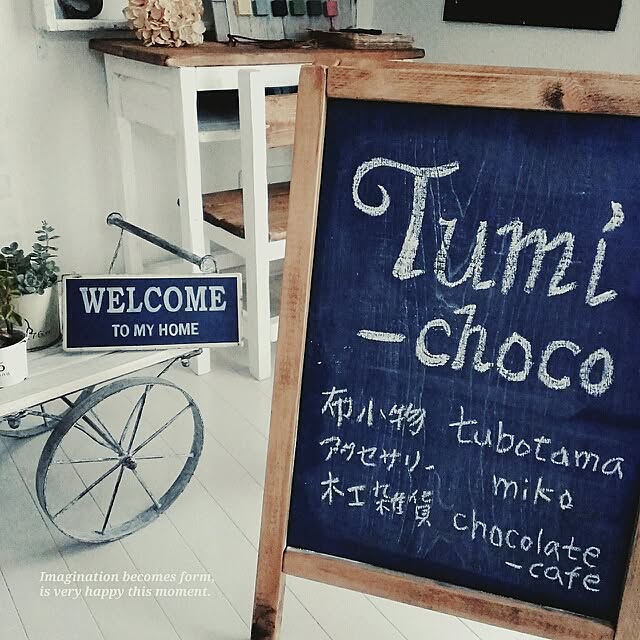 Tumi
-choco
布小物 tubotama
アクセサリー miko
木工雑貨 chocolate
-cafe
WELCOME
TO MY HOME
Imagination becomes form,
is very happy this moment.